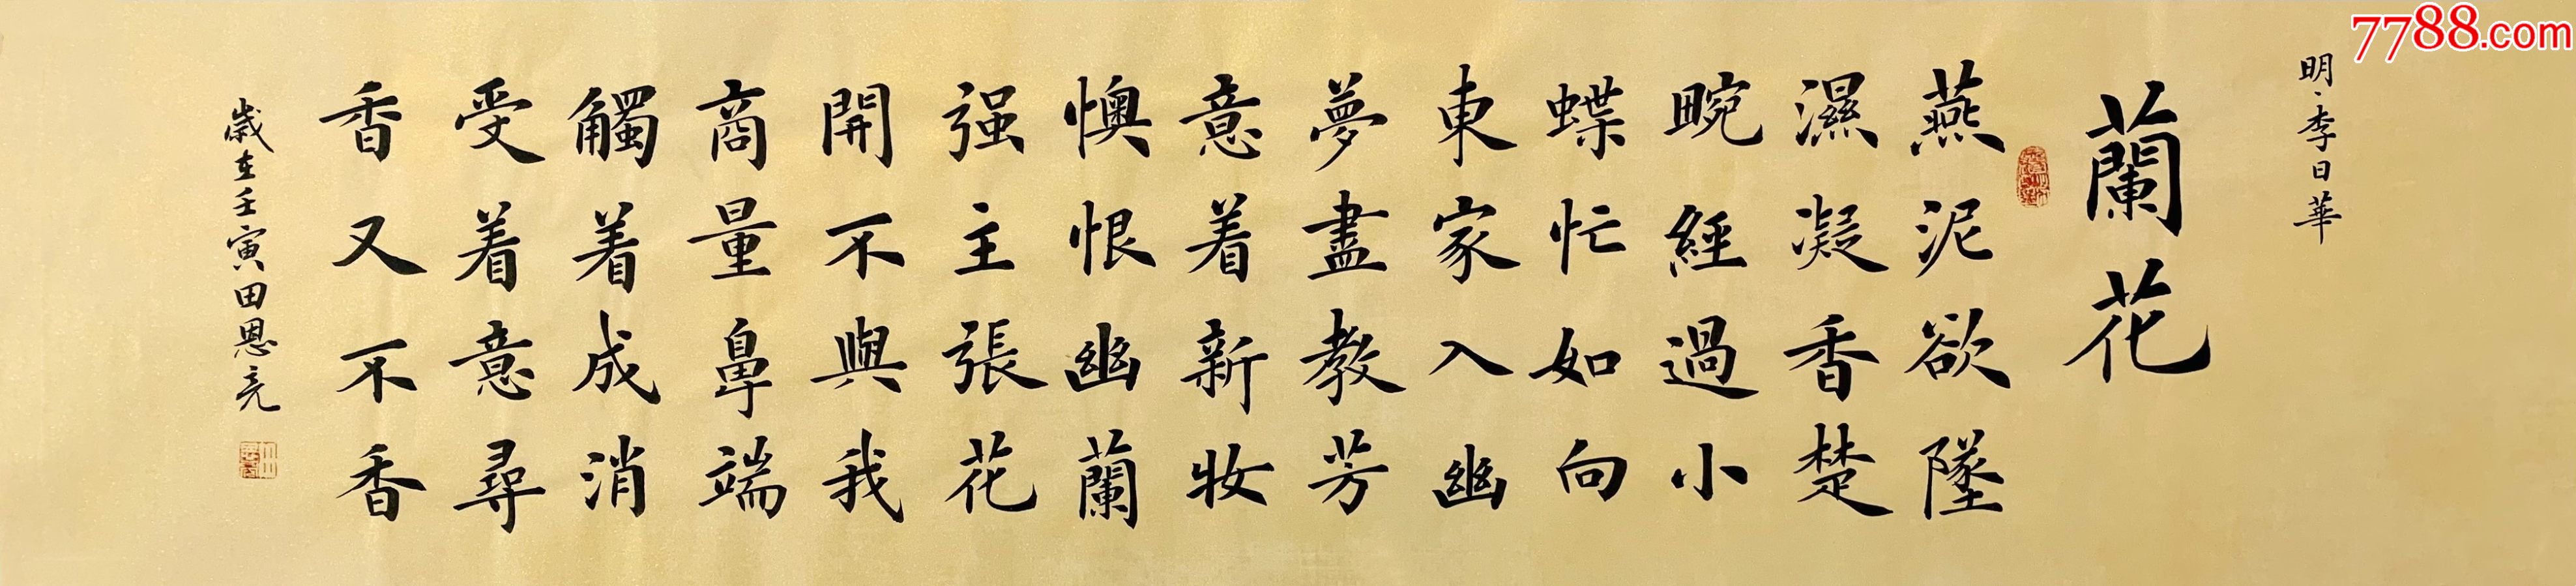 明·李日華
蘭花
燕泥欲墜
濕凝香楚
畹經過小
蝶忙如向
東家入幽
夢盡教芳
意着新妝
懊恨幽蘭
强主張花
開不與我
商量鼻端
觸着成消
受着意尋
香又不香
歲在壬寅田恩亮
7788.com